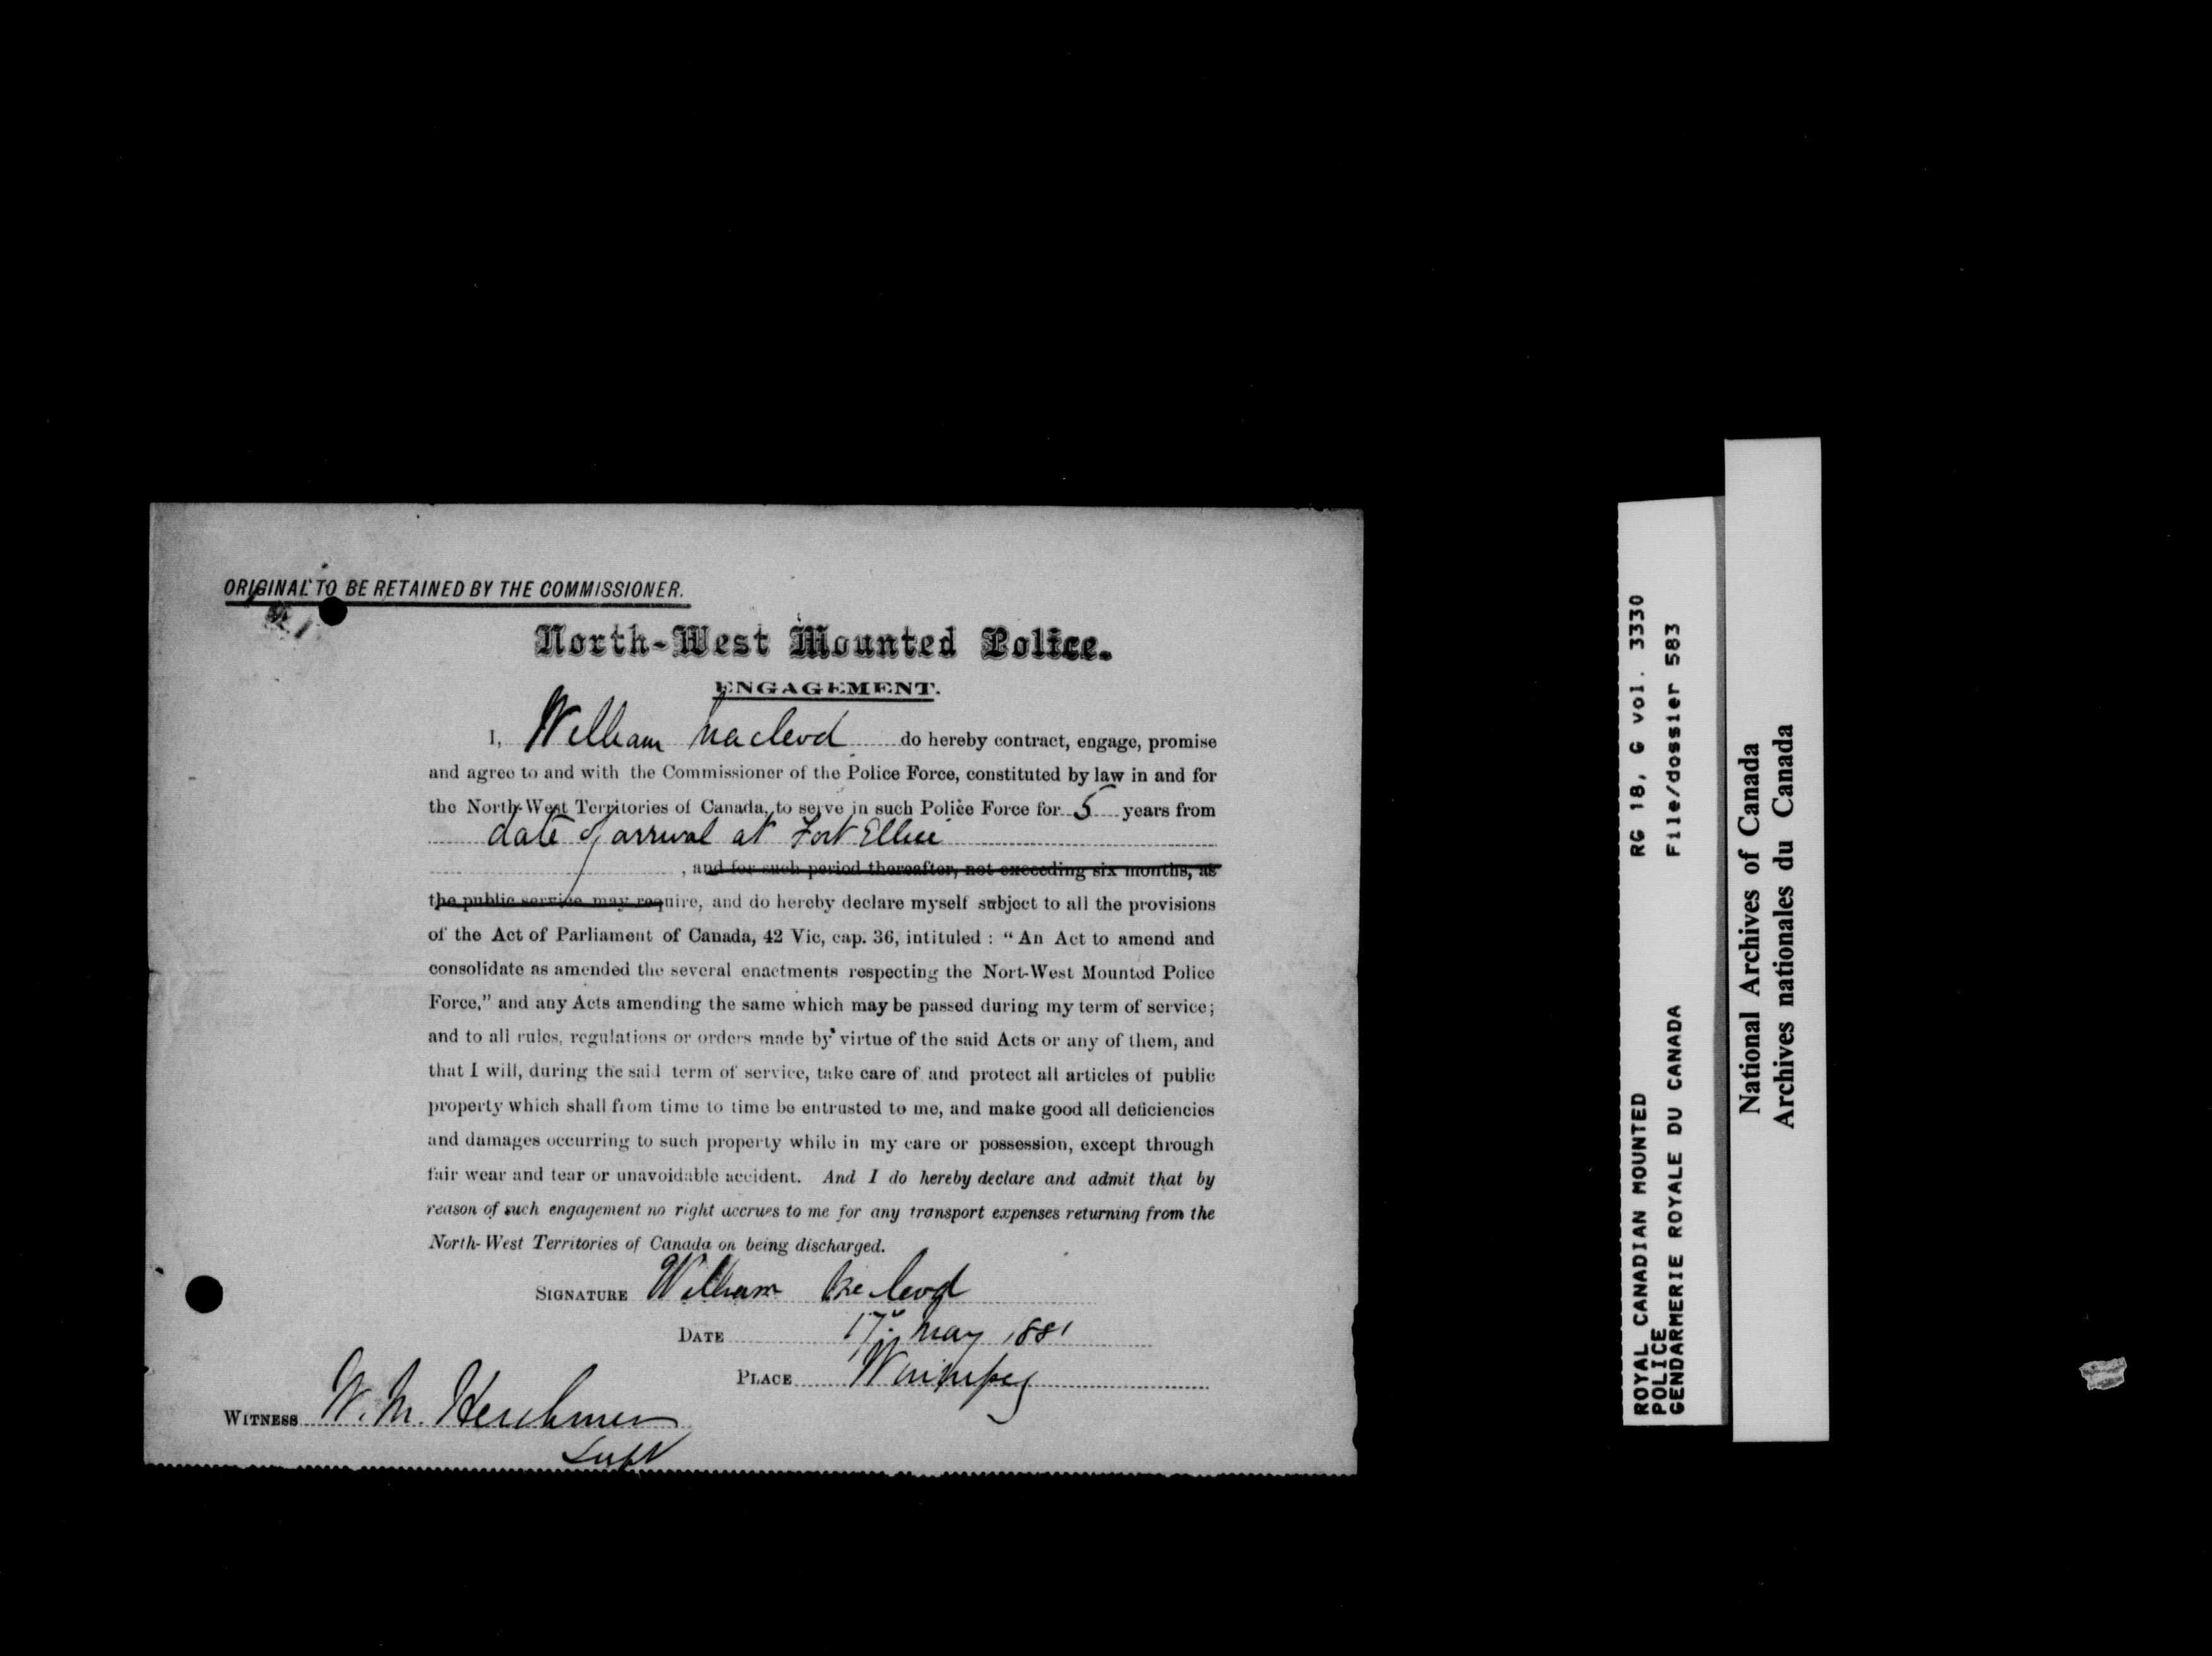 ORIGINAL TO BE RETAINED BY THE COMMISSIONER.
North-West Mounted Police.
ENGAGEMENT.
I, William Macleod do hereby contract, engage, promise
and agree to and with the Commissioner of the Police Force, constituted by law in and for
the North-West Territories of Canada, to serve in such Police Force for 5 years from
date of arrival at Fort Ellice
, and for such period thereafter, not exceeding six months, as
the public service may require, and do hereby declare myself subject to all the provisions
of the Act of Parliament of Canada, 42 Vic, cap. 36, intituled : “ An Act to amend and
consolidate as amended the several enactments respecting the Nort-West Mounted Police
Force,” and any Acts amending the same which may be passed during my term of service;
and to all rules, regulations or orders made by virtue of the said Acts or any of them, and
that I will, during the said term of service, take care of and protect all articles of public
property which shall from time to time be entrusted to me, and make good all deficiencies
and damages occurring to such property while in my care or possession, except through
fair wear and tear or unavoidable accident. And I do hereby declare and admit that by
reason of such engagement no right accrues to me for any transport expenses returning from the
North-West Territories of Canada on being discharged.
SIGNATURE William McLeod
DATE 17th May 1881
PLACE Winnipeg
WITNESS W. M. Herchmer
Supt
ROYAL CANADIAN MOUNTED RG 18, G vol. 3330
POLICE
GENDARMERIE ROYALE DU CANADA File/dossier 583
National Archives of Canada
Archives nationales du Canada